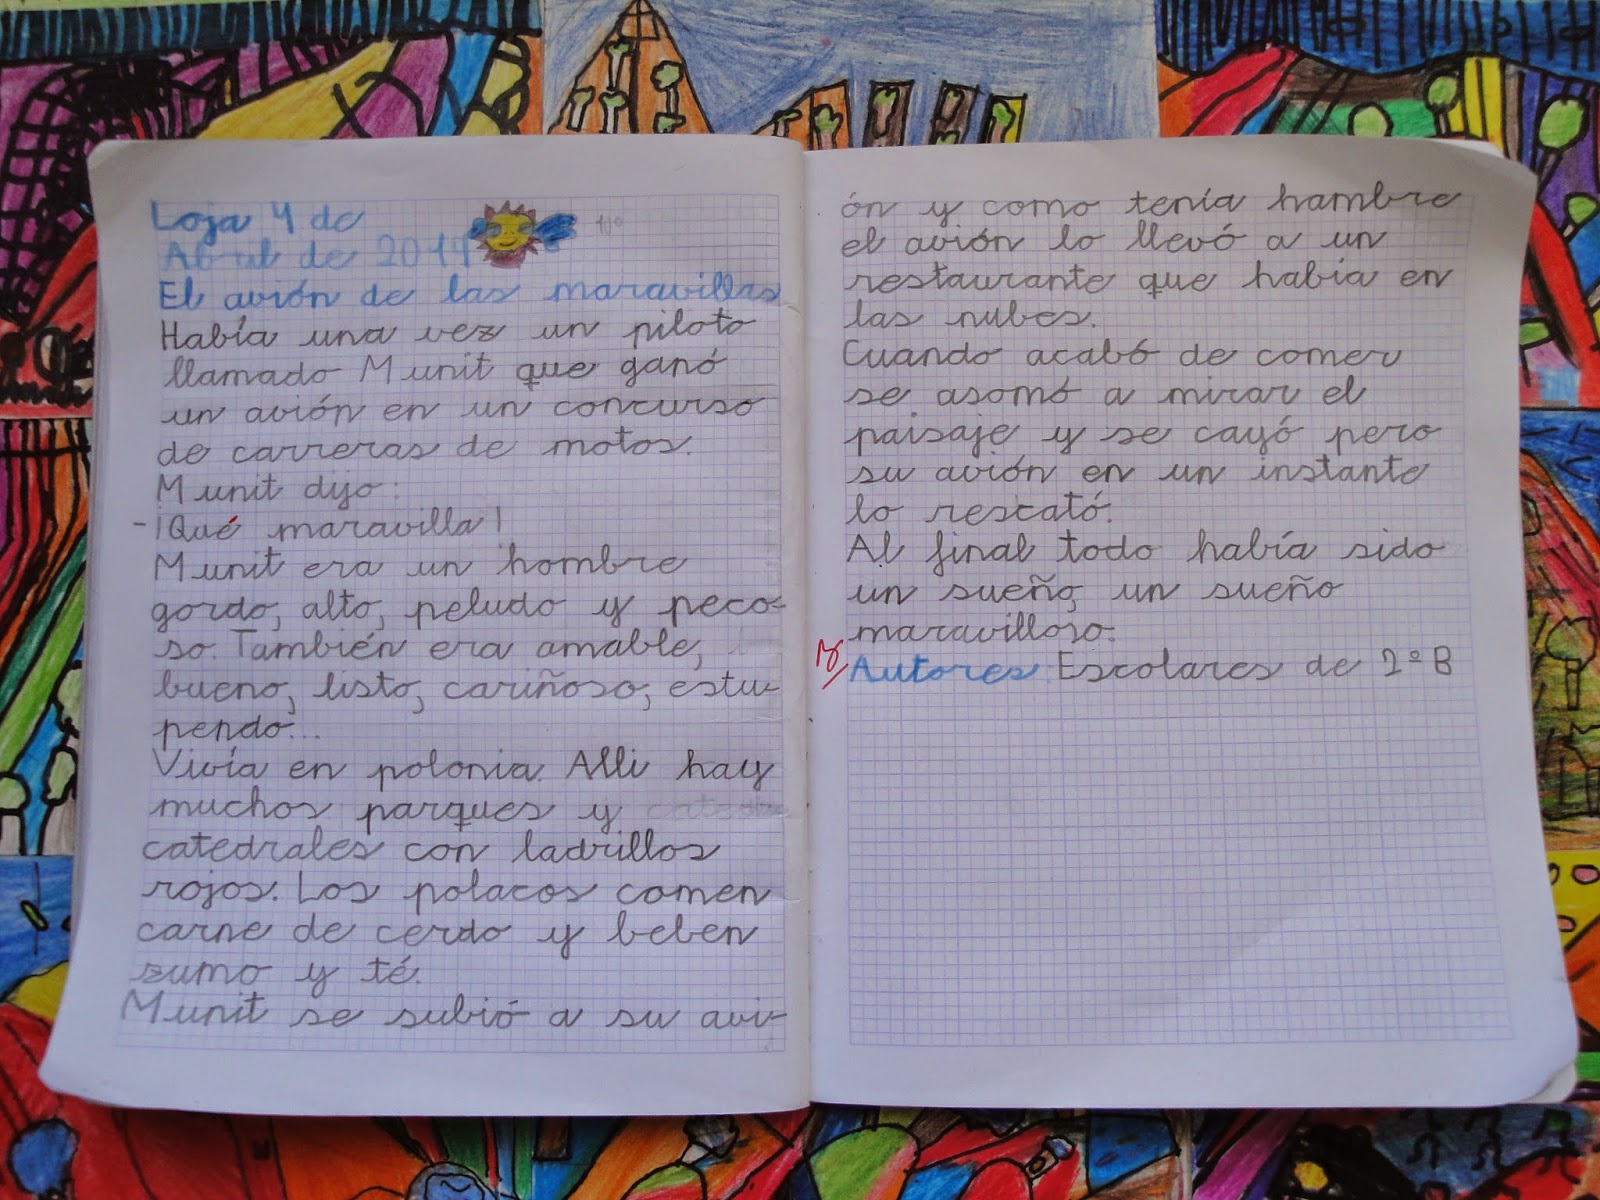 Loja 4 de
Abril de 2014
El avión de las maravillas
Había una vez un piloto
llamado Munit que ganó
un avión en un concurso
de carreras de motos.
Munit dijo:
-¡Qué maravilla!
Munit era un hombre
gordo, alto, peludo y peco-
so. También era amable,
bueno, listo, cariñoso, estu-
pendo...
Vivía en polonia. Alli hay
muchos parques y
catedrales con ladrillos
rojos. Los polacos comen
carne de cerdo y beben
zumo y té.
Munit se subió a su avi-
ón y como tenía hambre
el avión lo llevó a un
restaurante que había en
las nubes.
Cuando acabó de comer
se asomó a mirar el
paisaje y se cayó pero
su avión en un instante
lo rescató.
Al final todo había sido
un sueño, un sueño
maravilloso.
Autores Escolares de 2º B